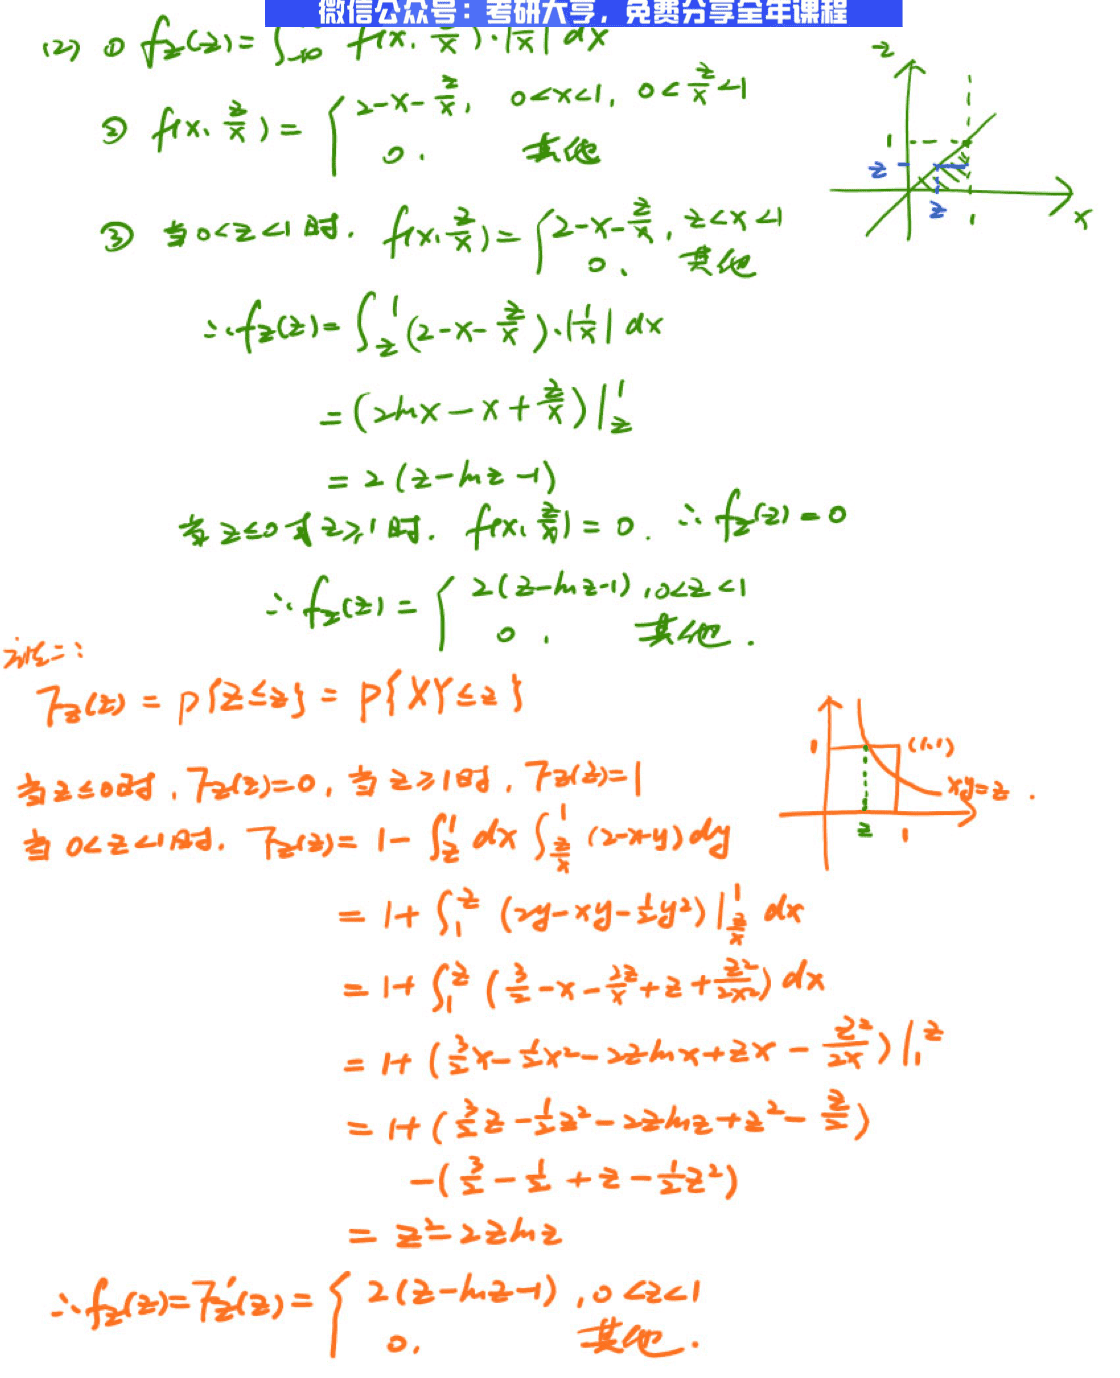 微信公众号：考研大亨，免费分享全年课程
(2) ① f_Z(z) = ∫_{-∞}^{+∞} f(x, z/x)·|1/x| dx
② f(x, z/x) = { 2-x-z/x, 0<x<1, 0<z/x<1
0, 其他
z
1
z
z
1
x
③ 当0<z<1时, f(x, z/x) = { 2-x-z/x, z<x<1
0, 其他
∴ f_Z(z) = ∫_z^1 (2-x-z/x)·|1/x| dx
= (2lnx - x + z/x)|_z^1
= 2(z-lnz-1)
当z≤0或z≥1时, f(x, z/x) = 0. ∴ f_Z(z) = 0
∴ f_Z(z) = { 2(z-lnz-1), 0<z<1
0, 其他.
法二:
F_Z(z) = P{Z≤z} = P{XY≤z}
当z≤0时, F_Z(z)=0, 当z≥1时, F_Z(z)=1
1
(1,1)
xy=z.
z
1
当0<z<1时, F_Z(z) = 1 - ∫_z^1 dx ∫_{z/x}^1 (2-x-y) dy
= 1+ ∫_1^z (2y-xy-½y²)|_{z/x}^1 dx
= 1+ ∫_1^z (3/2 - x - 2z/x + z + z²/2x²) dx
= 1+ (3/2x - ½x² - 2zlnx + zx - z²/2x)|_1^z
= 1+ (3/2z - ½z² - 2zlnz + z² - z/2)
-(3/2 - ½ + z - ½z²)
= z² - 2zlnz
∴ f_Z(z) = F_Z'(z) = { 2(z-lnz-1), 0<z<1
0, 其他.